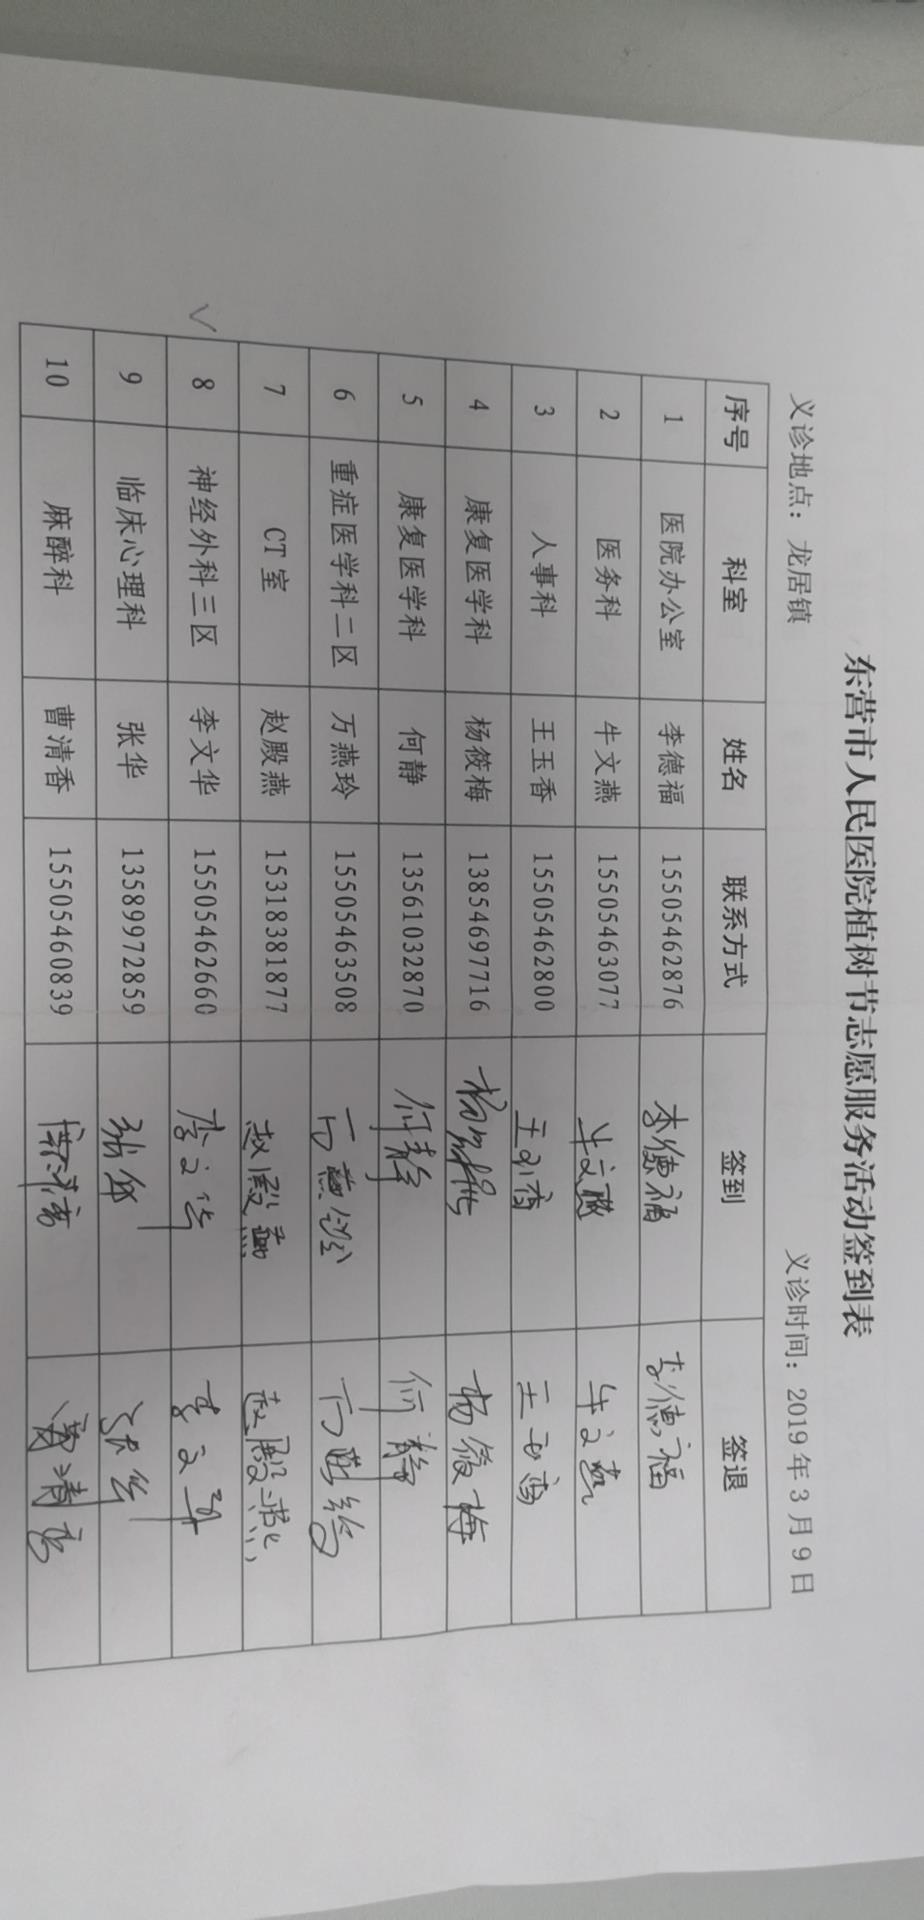 东营市人民医院植树节志愿服务活动签到表
义诊地点：龙居镇 义诊时间：2019年3月9日
序号 科室 姓名 联系方式 签到 签退
1 医院办公室 李德福 15505462876 李德福 李德福
2 医务科 牛文燕 15505463077 牛文燕 牛文燕
3 人事科 王玉香 15505462800 王玉香 王玉香
4 康复医学科 杨筱梅 13854697716 杨筱梅 杨筱梅
5 康复医学科 何静 13561032870 何静 何静
6 重症医学科二区 万燕玲 15505463508 万燕玲 万燕玲
7 CT室 赵殿燕 15318381877 赵殿燕 赵殿燕
8 神经外科三区 李文华 15505462660 李文华 李文华
9 临床心理科 张华 13589972859 张华 张华
10 麻醉科 曹清香 15505460839 曹清香 曹清香